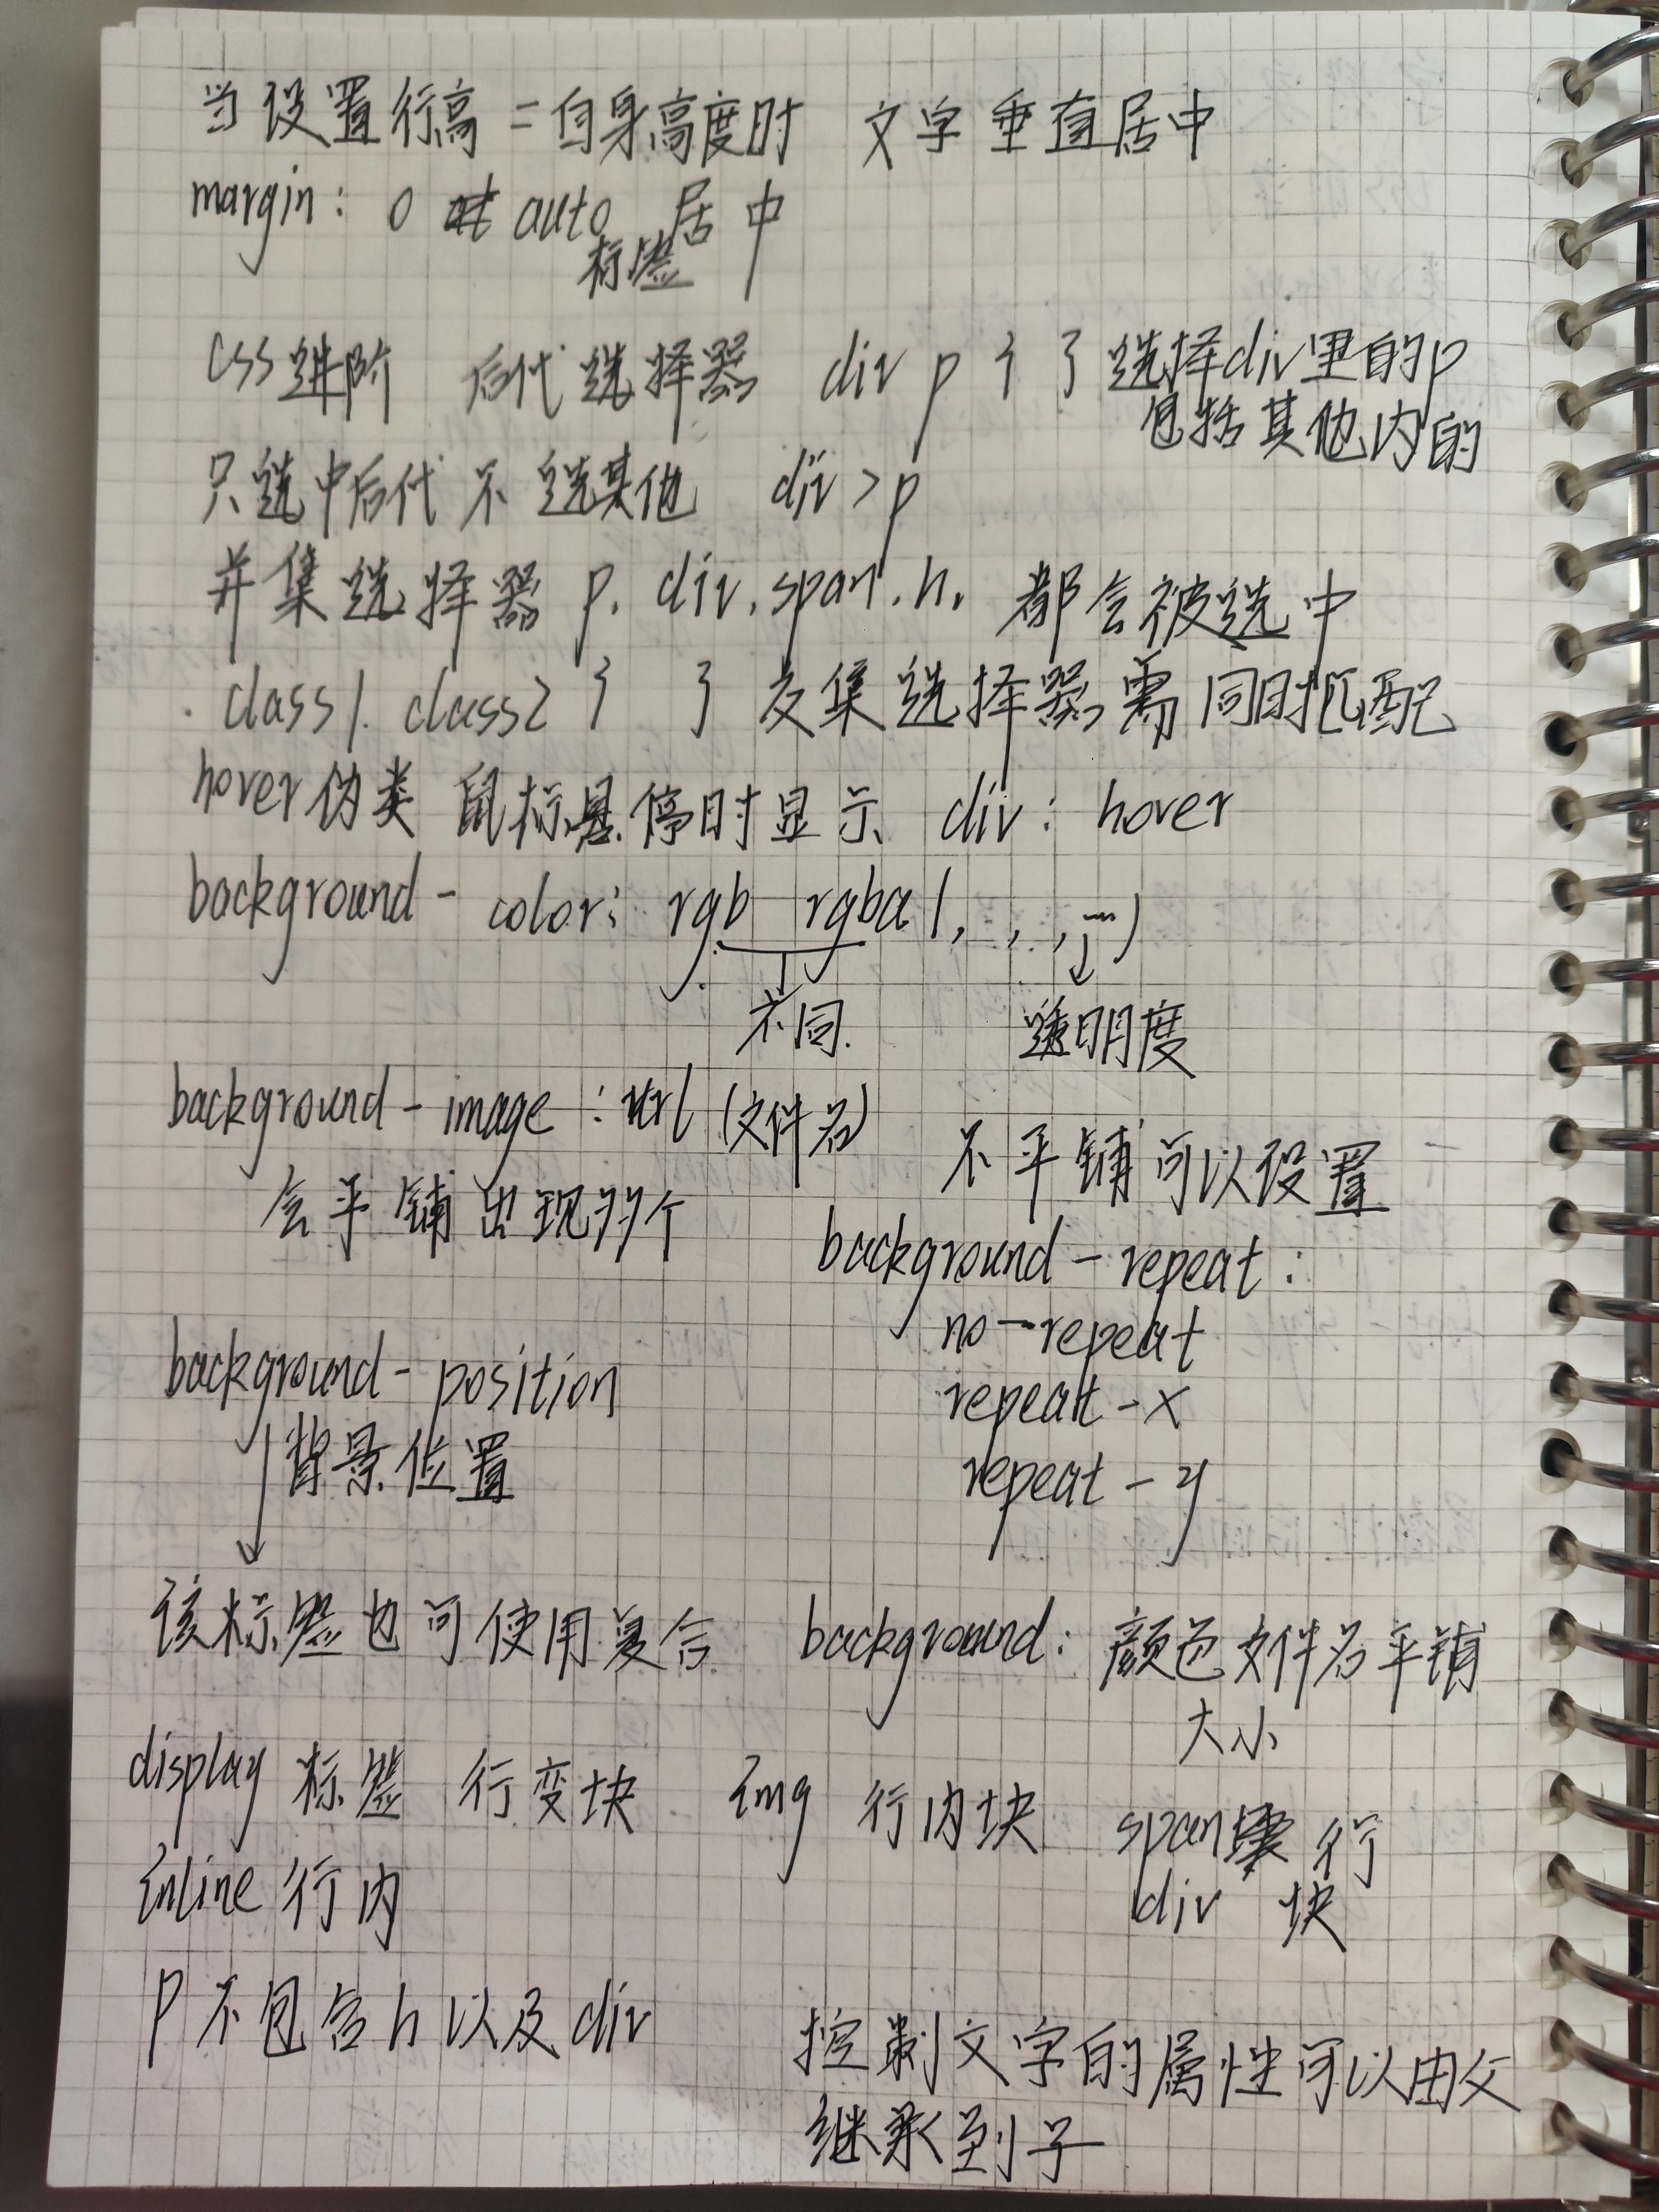 当设置行高=自身高度时 文字垂直居中
margin: 0 auto 居中
标签
css进阶 后代选择器 div p { } 选择div里的p
包括其他内的
只选中后代 不选其他 div>p
并集选择器 p. div. span. h. 都会被选中
.class1.class2 { } 交集选择器 需同时匹配
hover伪类 鼠标悬停时显示 div: hover
background-color: rgb rgba(,.,,...)
不同. 透明度
background-image: url (文件名)
会平铺出现
不平铺可以设置
background-repeat:
no-repeat
repeat-x
repeat-y
background-position
背景位置
该标签也可使用复合 background: 颜色文件名平铺
大小
display 标签 行变块 img 行内块 span 行
div 块
inline 行内
P不包含h以及div
控制文字的属性可以由父
继承到子